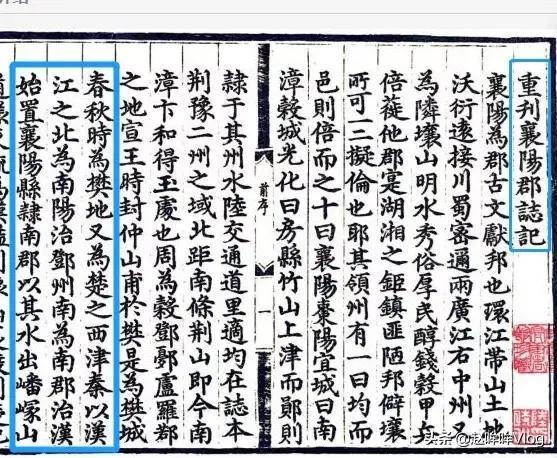 重刊襄陽郡誌記
襄陽為郡古文獻邦也環江帶山土地
沃衍遠接川蜀密邇兩廣江右中州又
為隣壤山明水秀俗厚民醇錢穀甲兵
倍蓰他郡寔湖湘之鉅鎮匪陋邦僻壤
所可三擬倫也耶其領州有一曰均而
邑則倍而之十曰襄陽棗陽宜城曰南
漳穀城光化曰房縣竹山上津而鄖則
前序
一
隷于其州水陸交通道里適均在誌本
荆豫二州之域北距南條荆山即今南
漳卞和得玉處也周為穀鄧鄾盧羅鄀
之地宣王時封仲山甫於樊是為樊城
春秋時為樊地又為楚之西津秦以漢
江之北為南陽治鄧州南為南郡治漢
始置襄陽縣隷南郡以其水出嶓冢山
头条 @赵晔晔Vlog